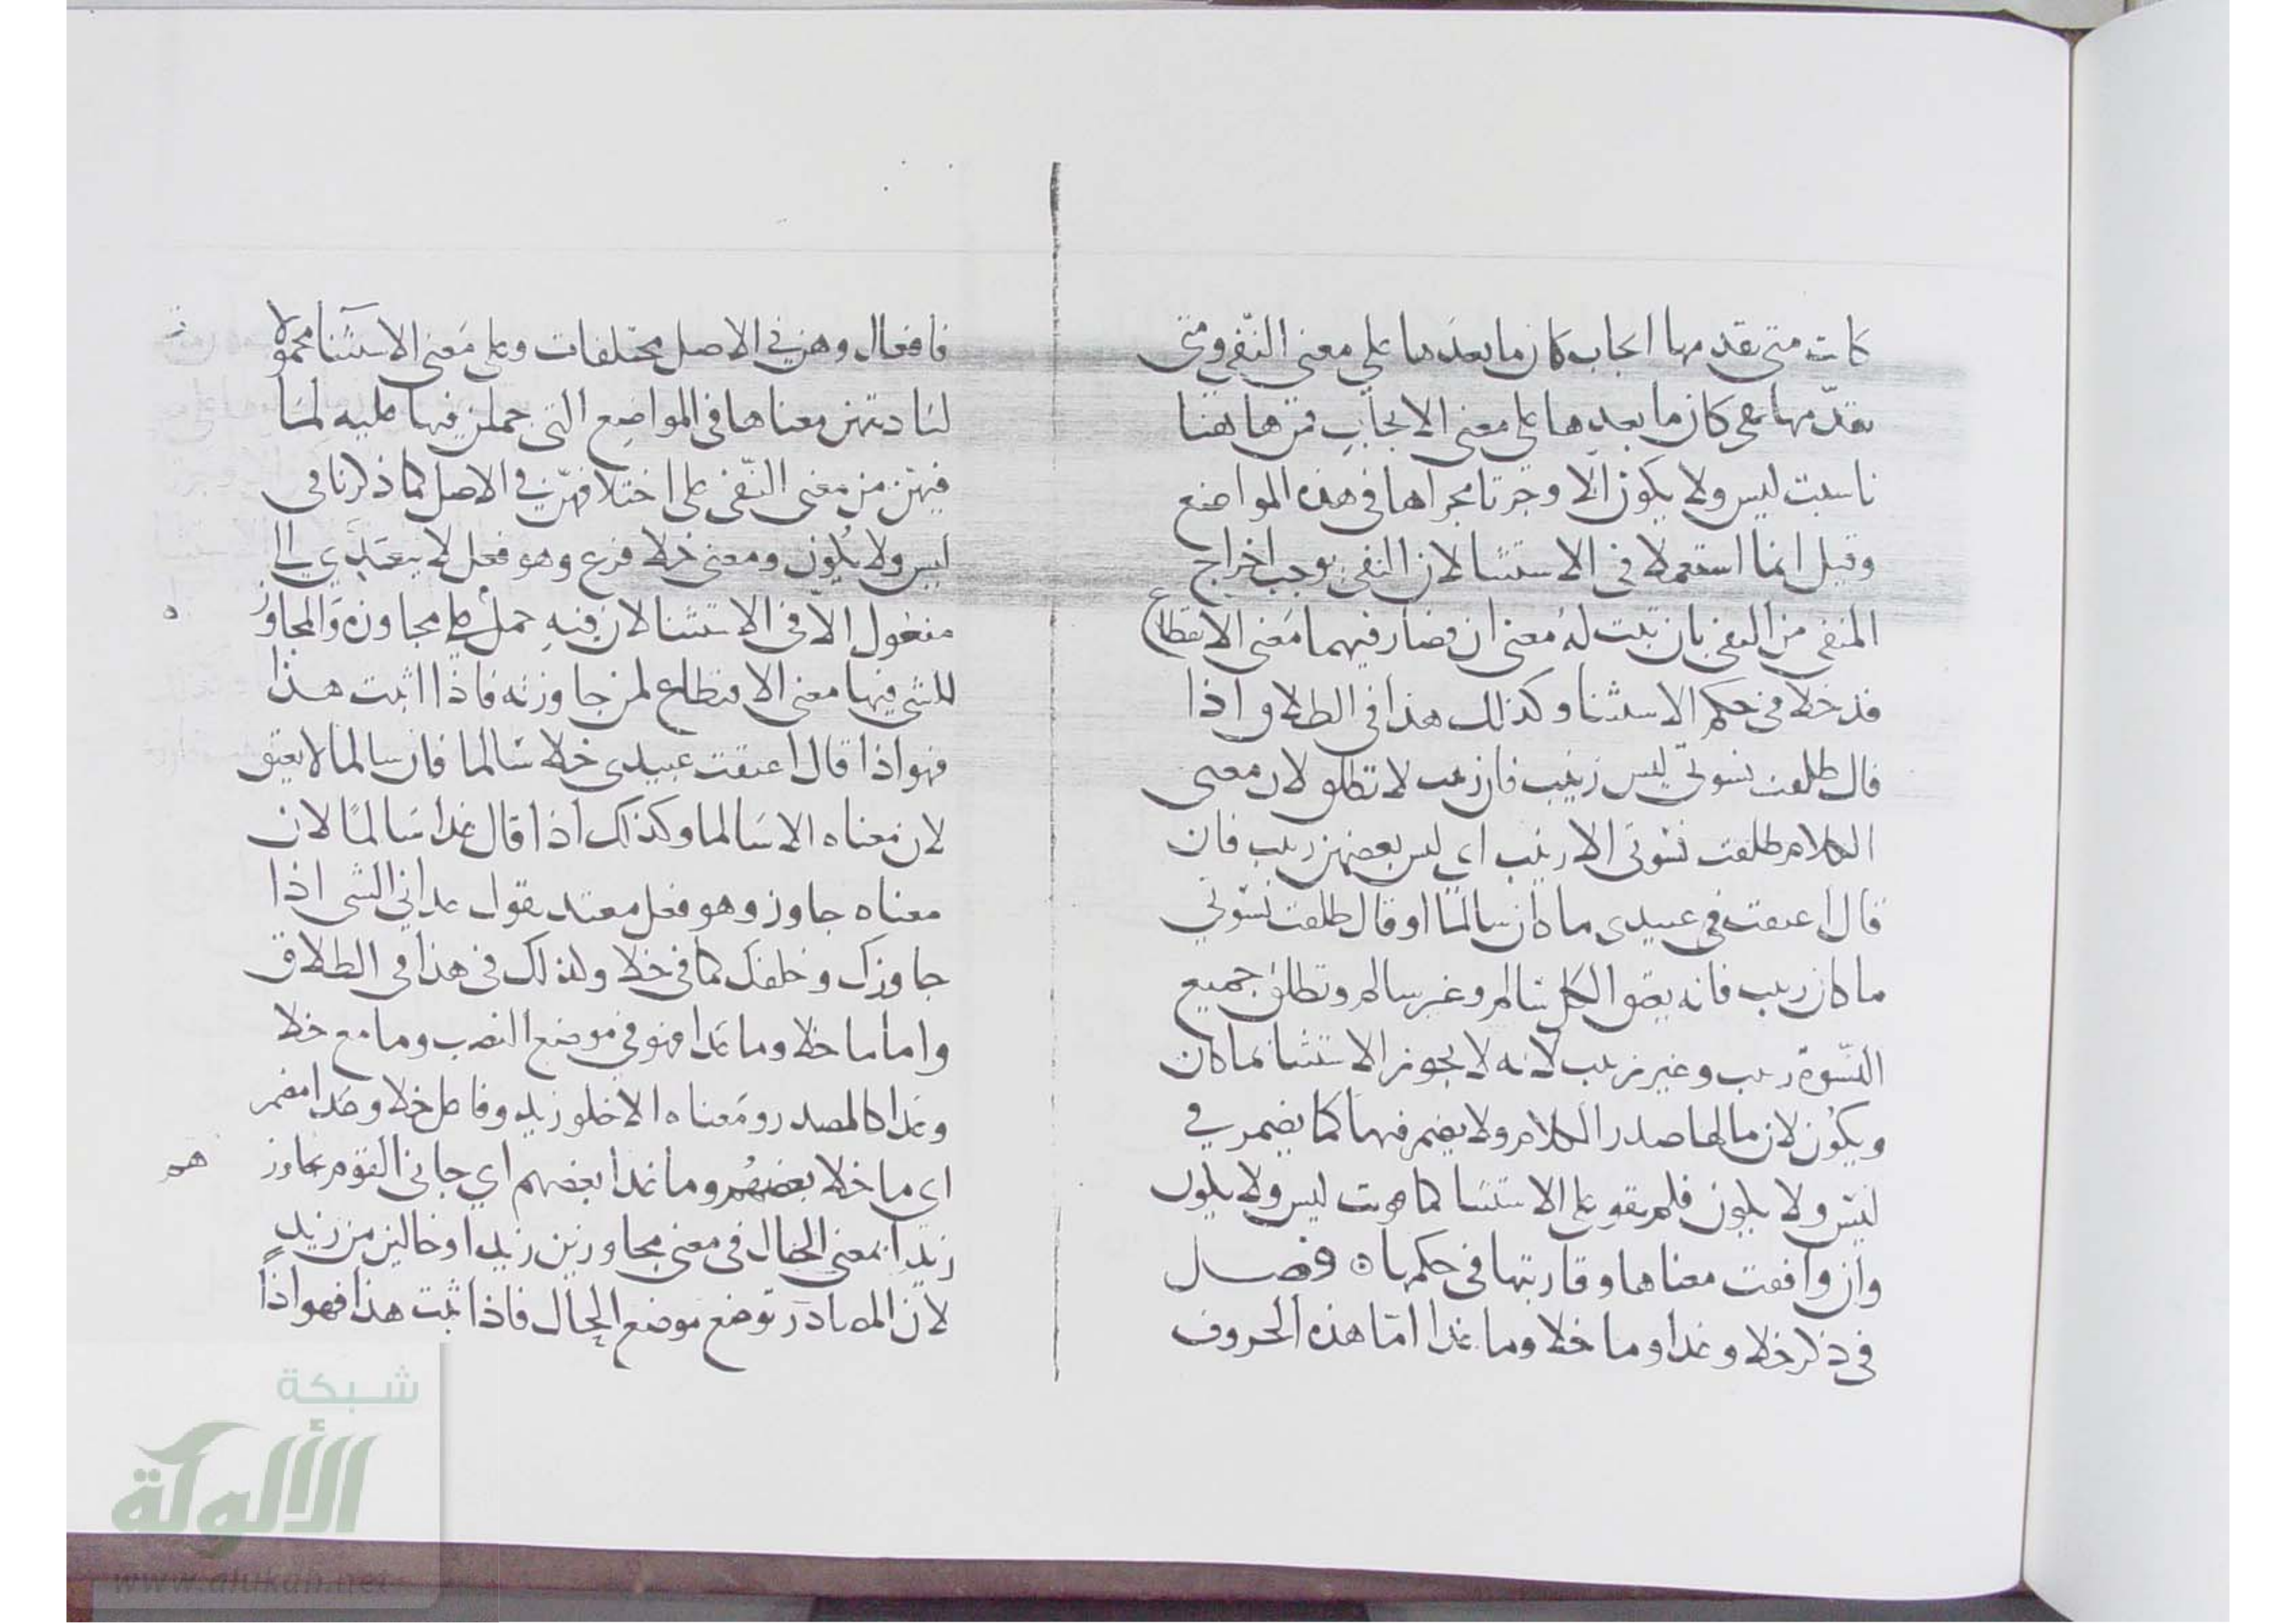 كانت متى تقدمها ايجاب كان ما بعدها على معنى النّفي ومتى
تقدّمها نفى كان ما بعدها على معنى الايجاب فمن هاهنا
ناسبت ليس ولا يكون الّا وجرتا مجراها فى هذه المواضع
وقيل انما استعملا فى الاستثنا لان النفى يوجب اخراج
المنفى من النفى بان ثبت له معنى ان فصار فيهما معنى الانقطاع
فدخلا فى حكم الاستثنا وكذلك هذا فى الطلاق واذا
قال طلقت نسوتي ليس زينب فان زينب لا تطلق لان معنى
الكلام طلقت نسوتى الا زينب اى ليس بعضهن زينب فان
قال اعتقت فى عبيدى ما كان سالمًا او قال طلقت نسوتي
ما كان زينب فانه يعتق الكل سالم وغير سالم وتطلق جميع
النّسوة زينب وغير زينب لانه لا يجوز الاستثنا بما كان
ويكون لان ما لها صدر الكلام ولا يضم فيها كما يضمر في
ليس ولا يكون فلم يقو على الاستثنا كما قويت ليس ولا يكون
وان وافقت معناها وقاربتها فى حكمها ه فصل
فى ذكر خلا وعدا وما خلا وما عدا امّا هذه الحروف
فافعال وهن في الاصل مختلفات وعلى معنى الاستثنا محمولا
لتادتهن معناها فى المواضع التى حملن فيها عليه لما
فيهن من معنى النّفى على اختلافهن في الاصل كما ذكرنا فى
ليس ولا يكون ومعنى خلا فرع وهو فعل لا يتعدي الى
مفعول الّا فى الاستثنا لان فيه حمل على مجاوزة والمجاوز
للشى فيها معنى الانقطاع لمن جاوزته فاذا اثبت هذا
فهو اذا قال اعتقت عبيدى خلا سالما فان سالما لا يعتق
لان معناه الا سالما وكذلك اذا قال عدا سالمًا لان
معناه جاوز وهو فعل متعد يقول عدانى الشى اذا
جاوزك وخلفك كما فى خلا ولذلك فى هذا فى الطلاق
واما ما خلا وما عدا فهو فى موضع النصب وما مع خلا
وعدا كالمصدر ومعناه الا خلو زيد وفاعل خلا وعدا مضمر
اى ما خلا بعضهم وما عدا بعضهم اي جانى القوم تجاوز
زيدا بمعنى الحال فى معنى مجاوزين زيدا وخالين من زيدٍ
لان المصادر توضع موضع الحال فاذا ثبت هذا فهو اذاً
هم
شبكة
الألوكة
www.alukah.net